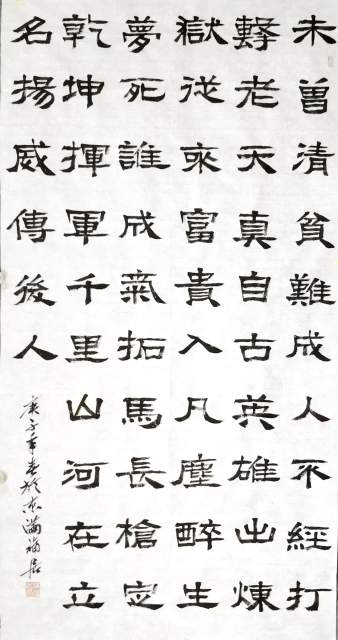 未曾清貧難成人不經打
擊老天真自古英雄出煉
獄從來富貴入凡塵醉生
夢死誰成氣拓馬長槍定
乾坤揮軍千里山河在立
名揚威傳後人
庚子年春於滿福居